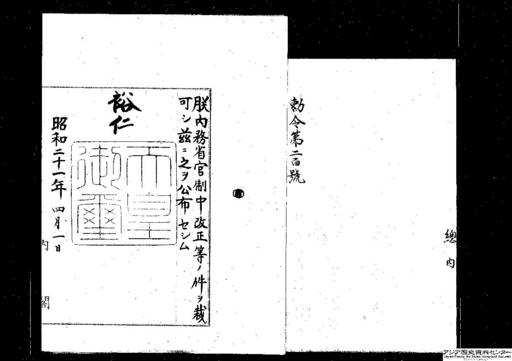 勅令第二百號
總內
朕內務省官制中改正等ノ件ヲ裁
可シ茲ニ之ヲ公布セシム
裕仁
天皇
御璽
昭和二十一年四月一日
內閣
アジア歴史資料センター